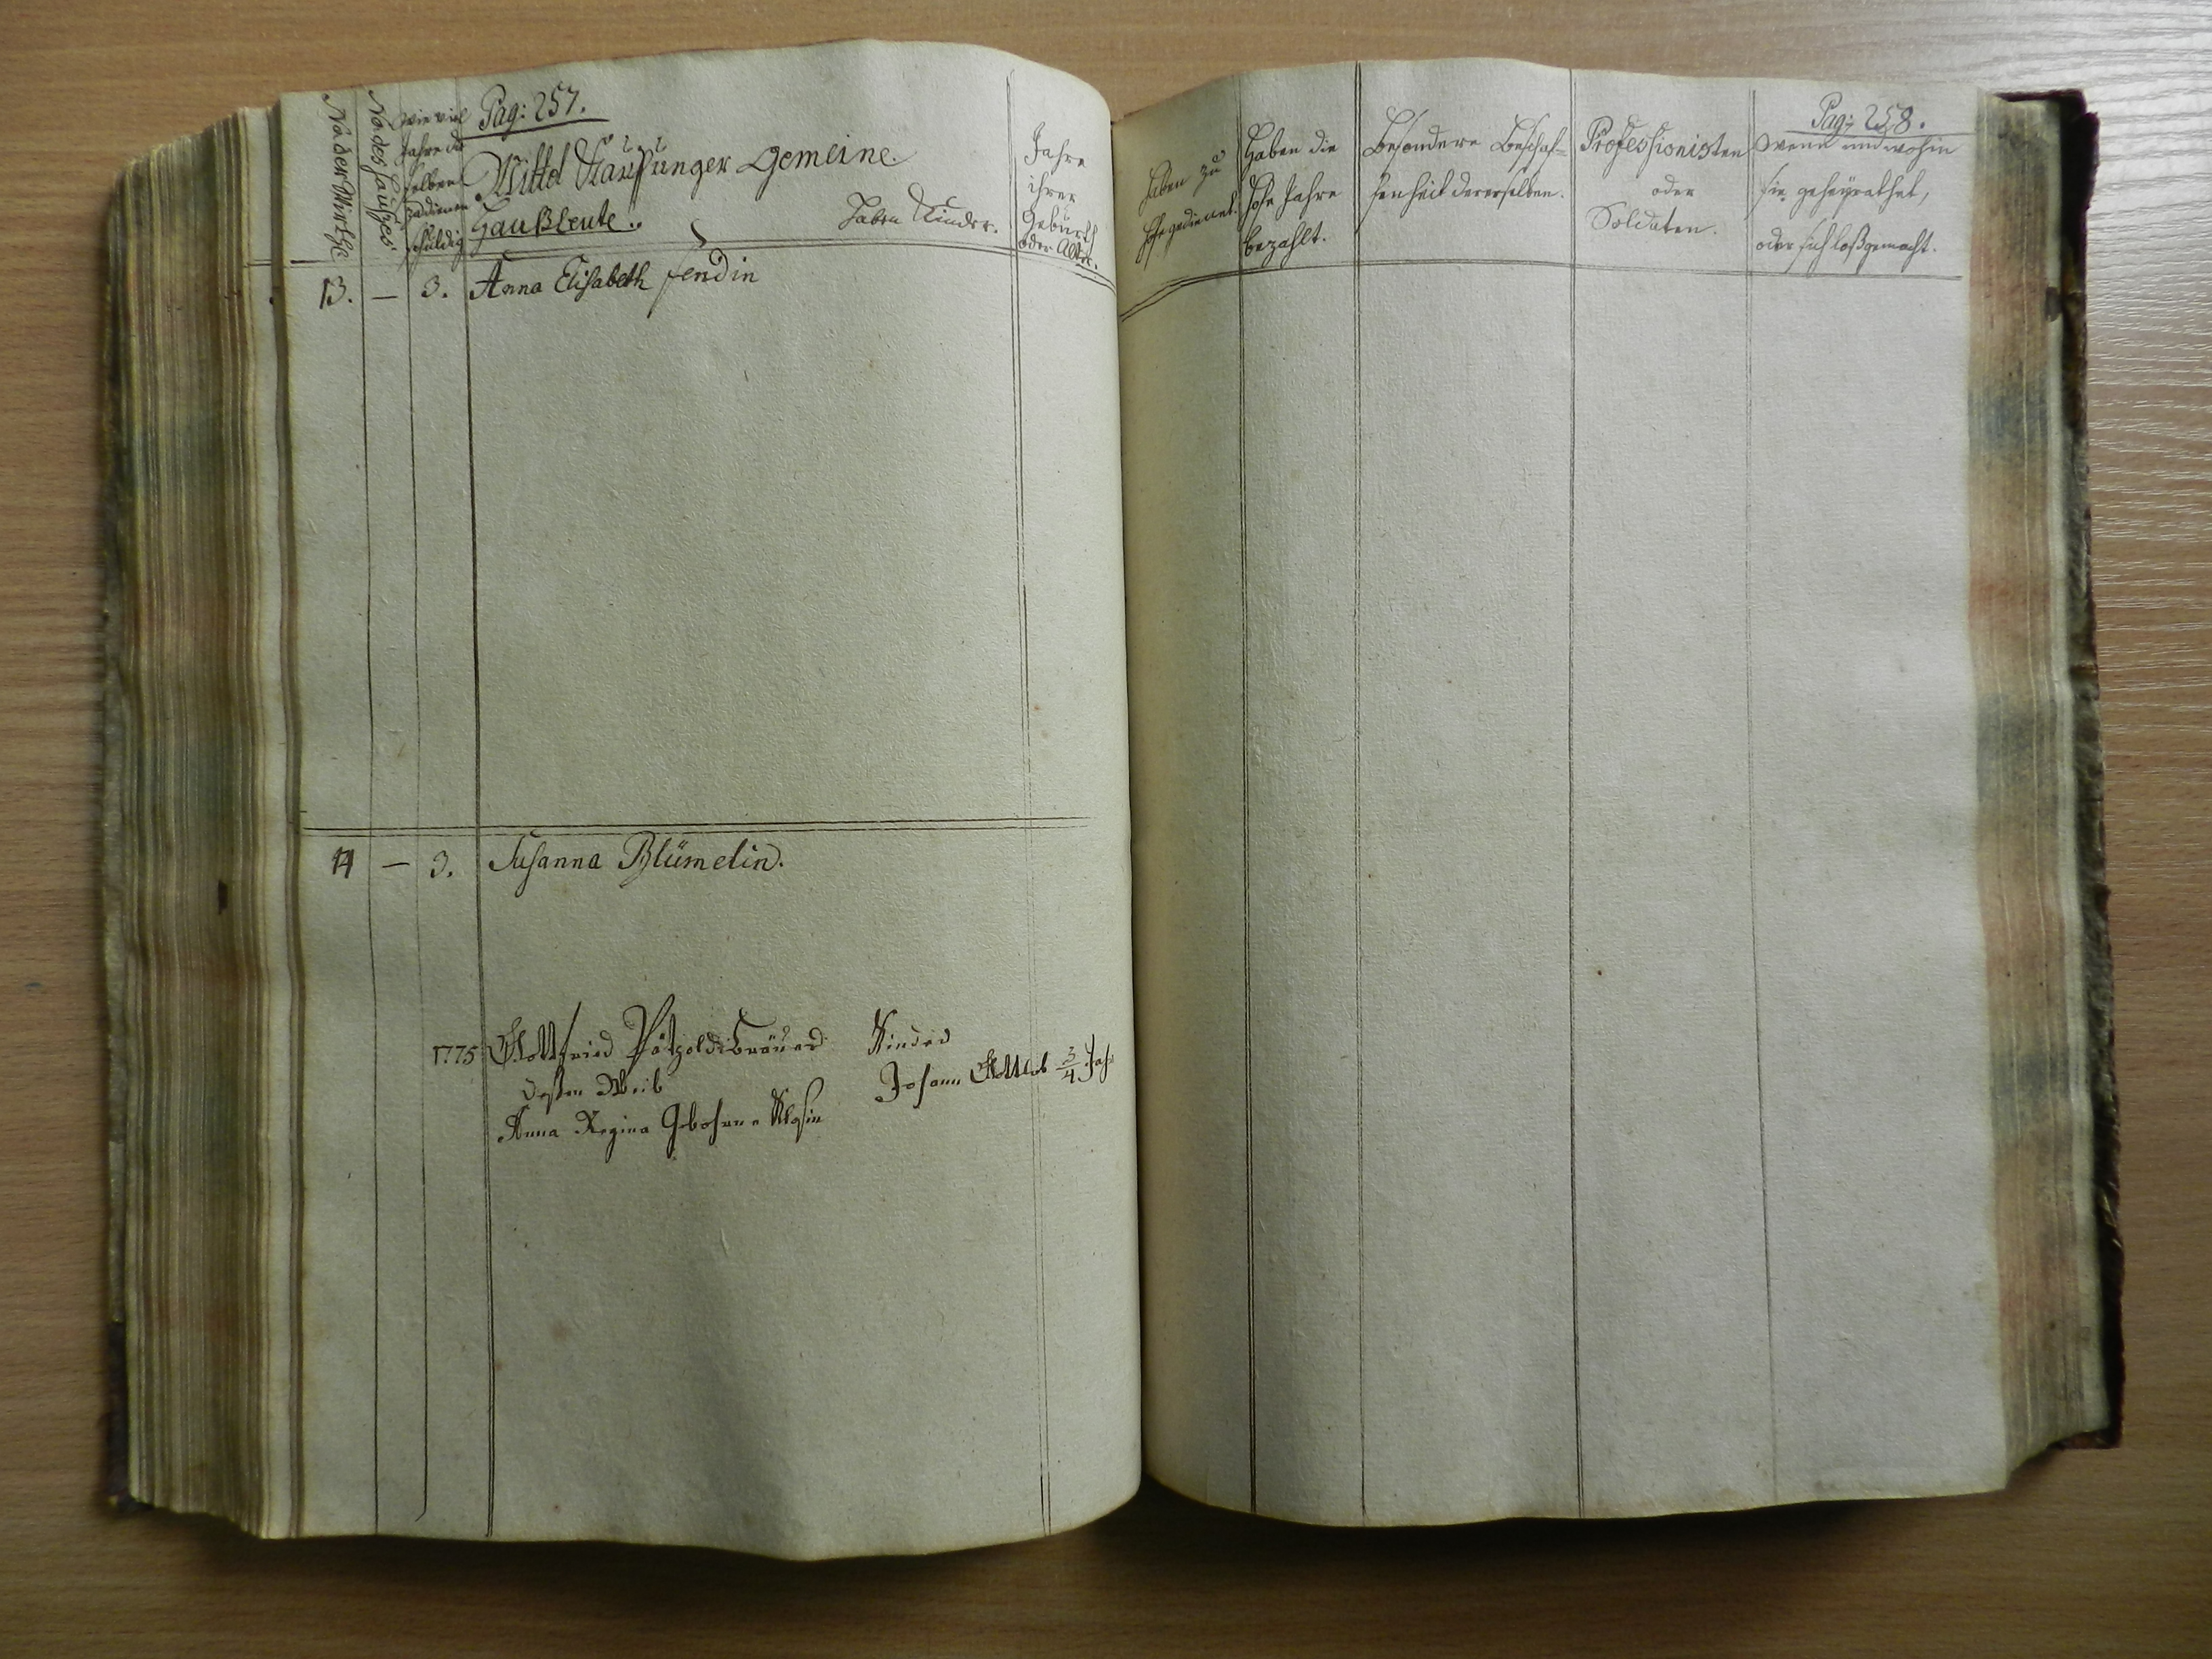 No der Wirthe
No des Hauses
Wie viel
Jahre die
selben
zu dienen
schuldig
Pag: 257.
Mittel Gemeine.
Haußleute.
Haben Kinder.
Jahre
ihrer
Geburth
oder Alter.
13. — 3. Anna Elisabeth Fendin
14 — 3. Susanna Blümelin.
1775 Gottfried Pätzold Bräuer
dessen Weib
Anna Regina Gebohrne Klosin
Kinder
Johann Gottlob 3/4 Jahr
Haben zu
Hofe gedienet.
Haben die
Hofe Jahre
bezahlt.
Besondere Beschaf-
fenheit dererselben.
Professionisten
oder
Soldaten.
Pag: 258.
Wenn und wohin
sie geheyrathet,
oder sich loßgemacht.